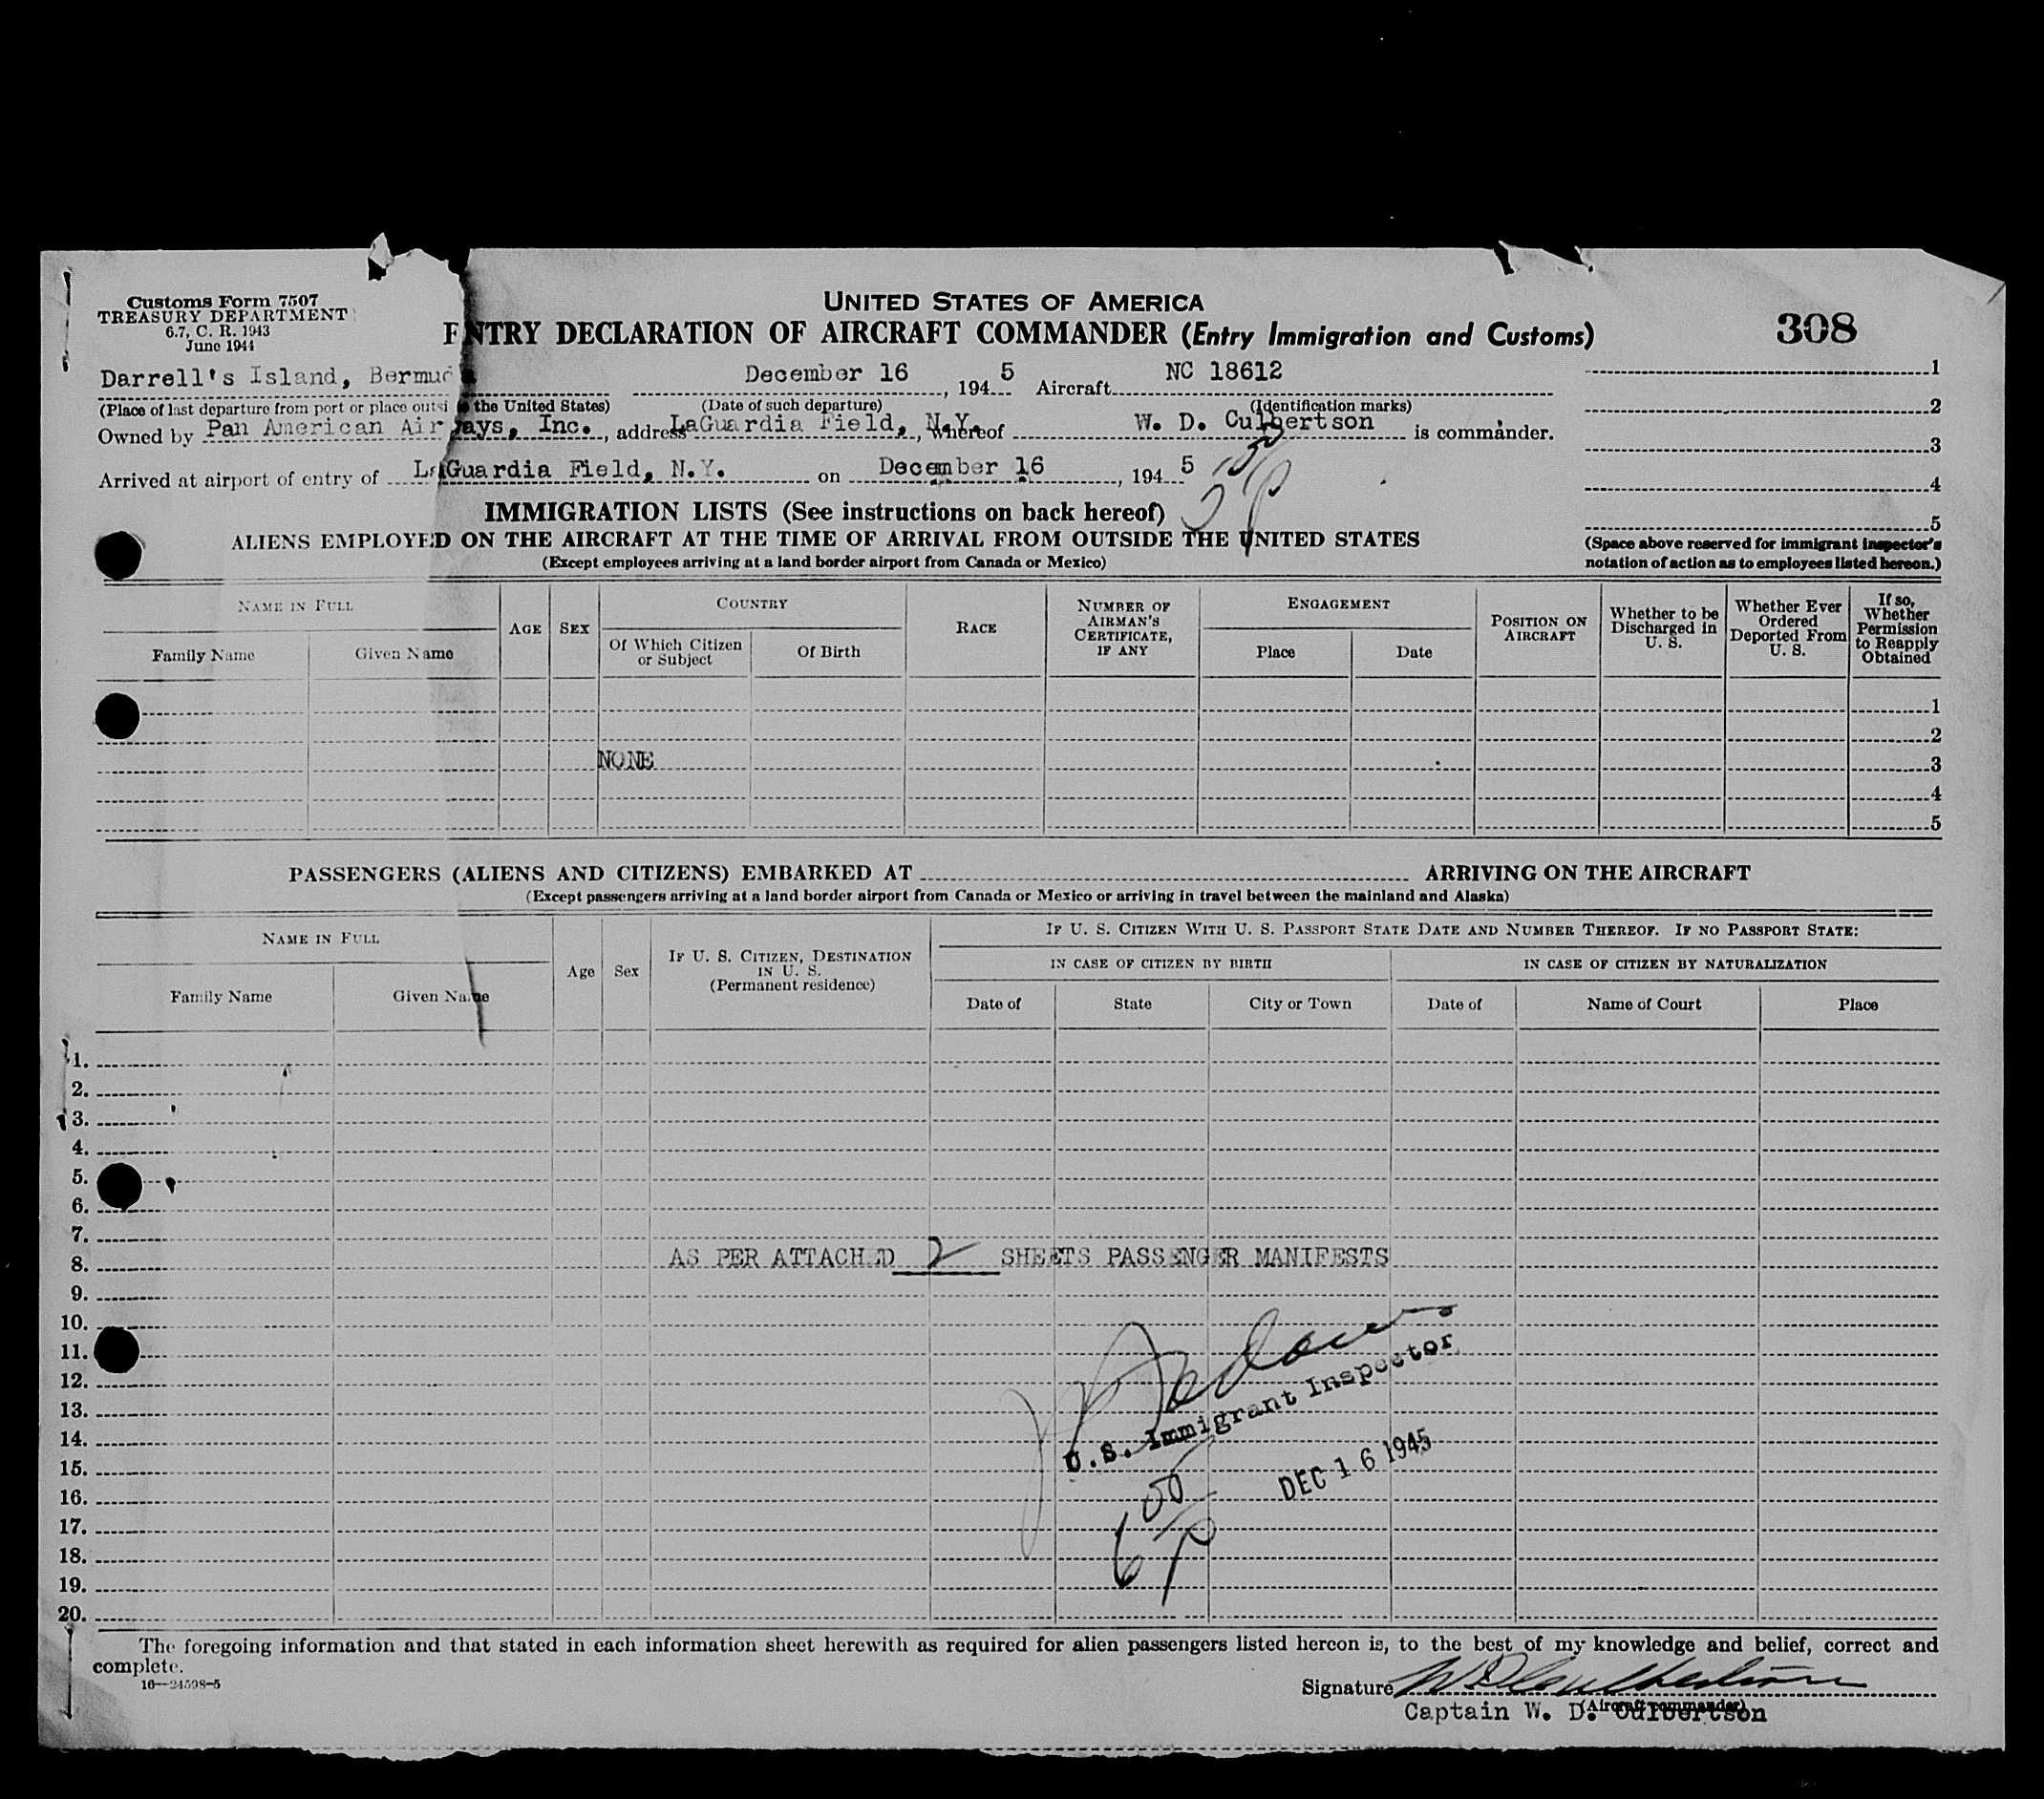 Customs Form 7507
TREASURY DEPARTMENT
6.7, C. R. 1943
June 1944
UNITED STATES OF AMERICA
ENTRY DECLARATION OF AIRCRAFT COMMANDER (Entry Immigration and Customs)
308
Darrell's Island, Bermuda December 16, 1945 Aircraft NC 18612
(Place of last departure from port or place outsi the United States) (Date of such departure) (Identification marks)
Owned by Pan American Airways, Inc., address LaGuardia Field, N.Y., whereof W. D. Culbertson is commander.
Arrived at airport of entry of LaGuardia Field, N.Y. on December 16, 1945
1
2
3
4
5
(Space above reserved for immigrant inspector's
notation of action as to employees listed hereon.)
IMMIGRATION LISTS (See instructions on back hereof)
ALIENS EMPLOYED ON THE AIRCRAFT AT THE TIME OF ARRIVAL FROM OUTSIDE THE UNITED STATES
(Except employees arriving at a land border airport from Canada or Mexico)
NAME IN FULL
Family Name Given Name
AGE
SEX
COUNTRY
Of Which Citizen
or Subject
Of Birth
RACE
NUMBER OF
AIRMAN'S
CERTIFICATE,
IF ANY
ENGAGEMENT
Place Date
POSITION ON
AIRCRAFT
Whether to be
Discharged in
U. S.
Whether Ever
Ordered
Deported From
U. S.
If so,
Whether
Permission
to Reapply
Obtained
1
2
NONE 3
4
5
PASSENGERS (ALIENS AND CITIZENS) EMBARKED AT ARRIVING ON THE AIRCRAFT
(Except passengers arriving at a land border airport from Canada or Mexico or arriving in travel between the mainland and Alaska)
NAME IN FULL
Family Name Given Name
Age
Sex
IF U. S. CITIZEN, DESTINATION
IN U. S.
(Permanent residence)
IF U. S. CITIZEN WITH U. S. PASSPORT STATE DATE AND NUMBER THEREOF. IF NO PASSPORT STATE:
IN CASE OF CITIZEN BY BIRTH
IN CASE OF CITIZEN BY NATURALIZATION
Date of State City or Town Date of Name of Court Place
1.
2.
3.
4.
5.
6.
7.
8. AS PER ATTACHED 2 SHEETS PASSENGER MANIFESTS
9.
10.
11.
12.
13.
14.
15.
16.
17.
18.
19.
20.
U.S. Immigrant Inspector
DEC 16 1945
6 50 P
The foregoing information and that stated in each information sheet herewith as required for alien passengers listed hereon is, to the best of my knowledge and belief, correct and
complete.
16—24598-5
Signature W D Culbertson
(Aircraft commander)
Captain W. D. Culbertson